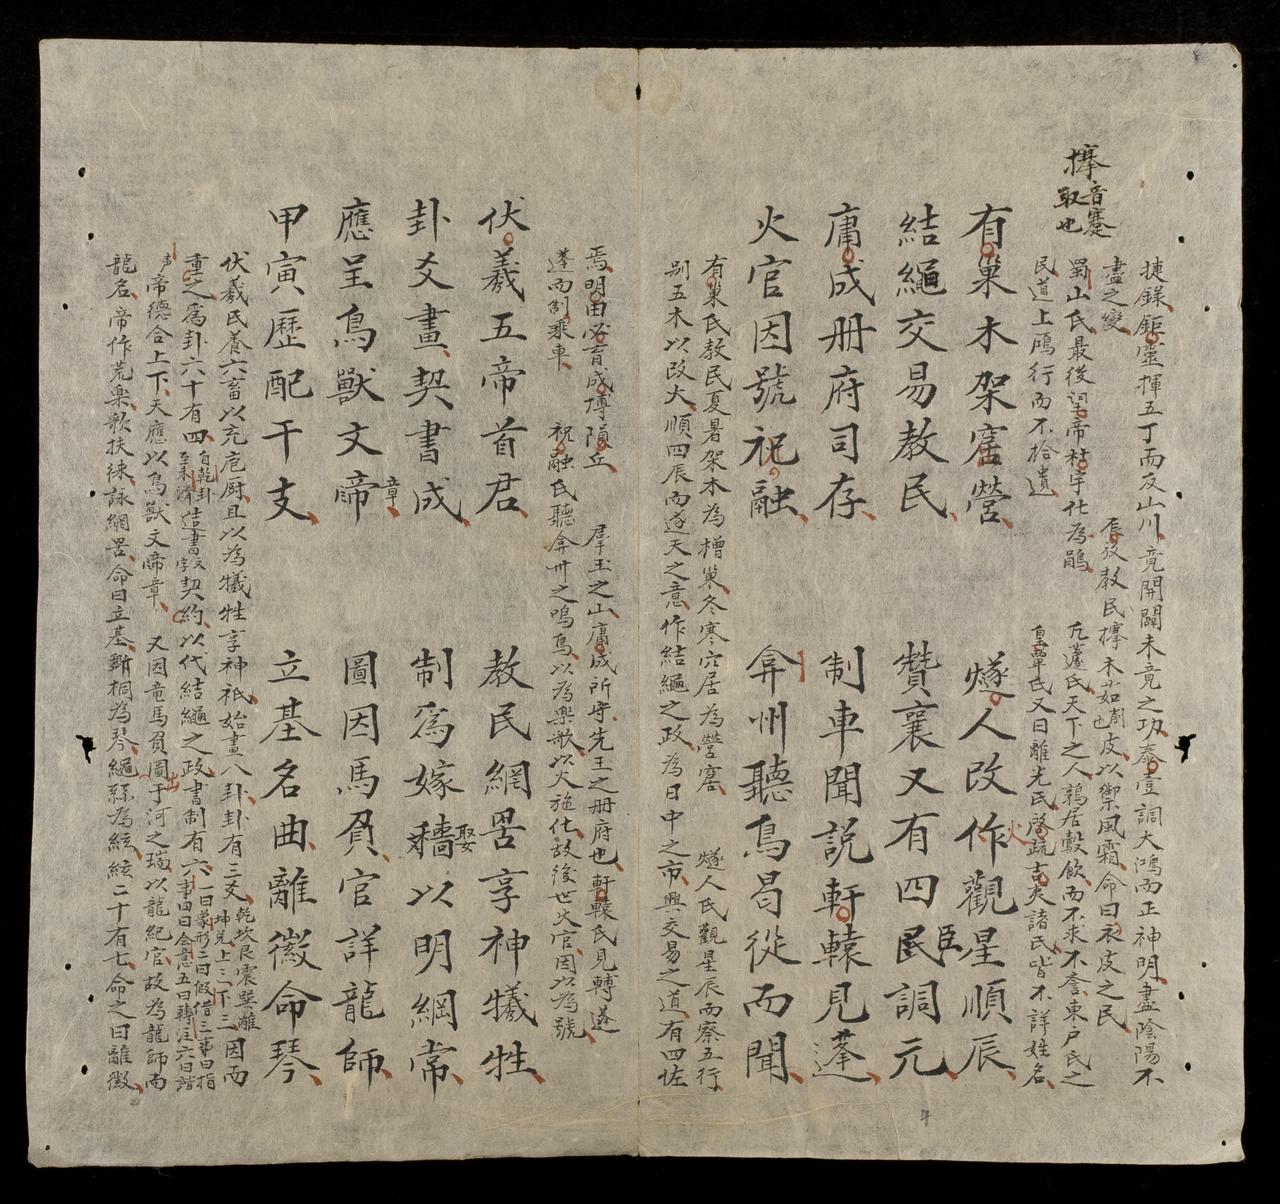 搼音蹇取也
捷錄鉅靈揮五丁而反山川竟開闢未竟之功泰壹詞大鴻而正神明盡陰陽不
盡之變 辰放教民搼木茹皮以禦風霜命曰衣皮之民
蜀山氏最後望帝杜宇化為鵑 尢蘧氏天下之人鶉居鷇飲而不求不譽東户氏之
民道上鴈行而不拾遺 皇覃氏又曰離光氏啓疏吉夷諸氏皆不詳姓名
有巢木架窟營 燧人改作火觀星順辰
結繩交易教民 贊襄又有四民臣詞元
庸成册府司存 制車聞説軒轅見蓬
火官因號祝融 弇州聽鳥曷從而聞
有巢氏教民夏暑架木為橧巢冬寒穴居為營窟 燧人氏觀星辰而察五行
别五木以改火順四辰而遂天之意作結繩之政為日中之市興交易之道有四佐
焉明由必育成博隕丘 羣玉之山庸成所守先王之册府也軒轅氏見轉蓬
蓬而制乘車 祝融氏聽弇州之鳴鳥以為樂歌以火施化故後世火官因以為號
伏羲五帝首君 教民網罟享神犧牲
卦爻畫契書成 制爲嫁穡娶以明綱常
應呈鳥獸文啼章 圖因馬負官詳龍師
甲寅歷配干支 立基名曲離徽命琴
伏羲氏養六畜以充庖厨且以為犧牲享神祇始畫八卦卦有三爻乾坎艮震巽離坤兑上三下三因而
重之爲卦六十有四自乾卦至未濟造書文字契約以代結繩之政書制有六一曰象形二曰假借三曰指事四曰會意五曰轉注六曰諧
声帝德合上下天應以鳥獸文啼章 又因竜馬負圖出于河之瑞以龍紀官故為龍師而
龍名帝作荒樂歌扶徠詠網罟命曰立基斵桐為琴繩絲為絃絃二十有七命之曰離徽